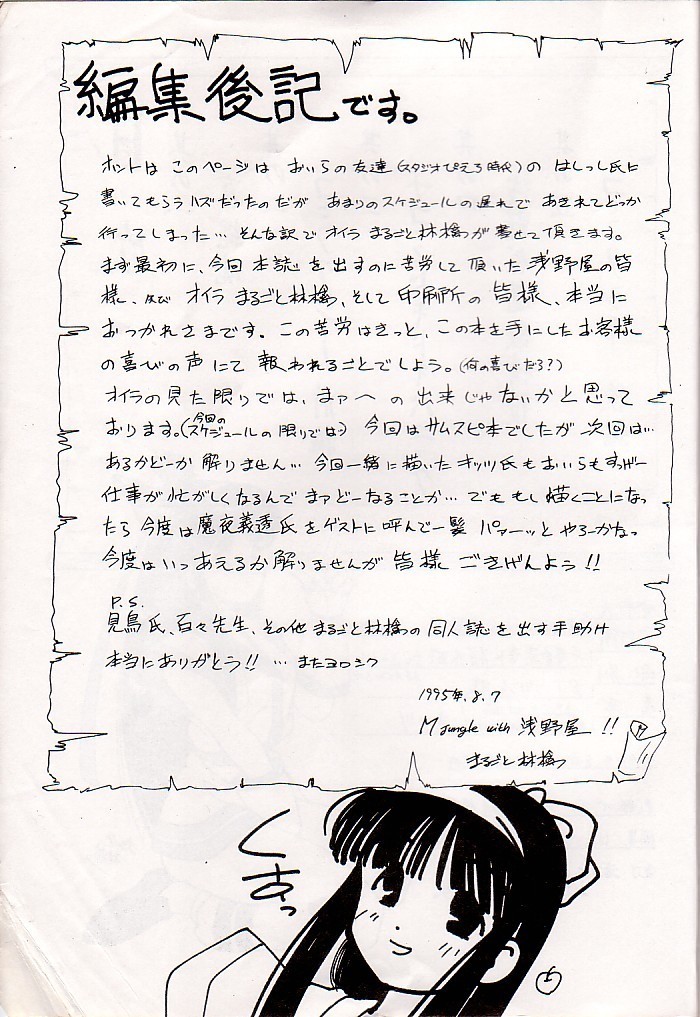 編集後記です。
ホントは このページは おいらの友達(スタジオぴえろ時代)の はしっし氏に
書いてもらうハズだったのだが あまりのスケジュールの遅れで あきれてどっか
行ってしまった… そんな訳で オイラ まるごと林檎っが書せて頂きます。
まず最初に、今回 本誌を出すのに苦労して頂いた 浅野屋の皆
様、及び オイラ まるごと林檎、そして 印刷所の 皆様、本当に
おつかれさまです。この苦労はきっと、この本を手にしたお客様
の喜びの声にて 報われることでしょう。(何の喜びだろ?)
オイラの見た限りでは、まァへの出来じゃないかと思って
おります。(今回のスケジュールの限りでは) 今回はサムスピ本でしたが 次回は…
あるかどーか 解りません… 今回一緒に描いたキッツ氏もおいらもすっげー
仕事が忙がしくなるんで まァどーなることか… でももし描くことになっ
たら 今度は 魔夜義透氏をゲストに呼んで一髪 パァーッと やろーかなっ
今度はいつあえるか解りませんが 皆様 ごきげんよう!!
P.S.
見鳥氏、百々先生、その他 まるごと林檎っの 同人誌を出す手助け
本当にありがとう!! … またヨロシク
1995年.8.7
M Jungle with 浅野屋 !!
まるごと林檎っ